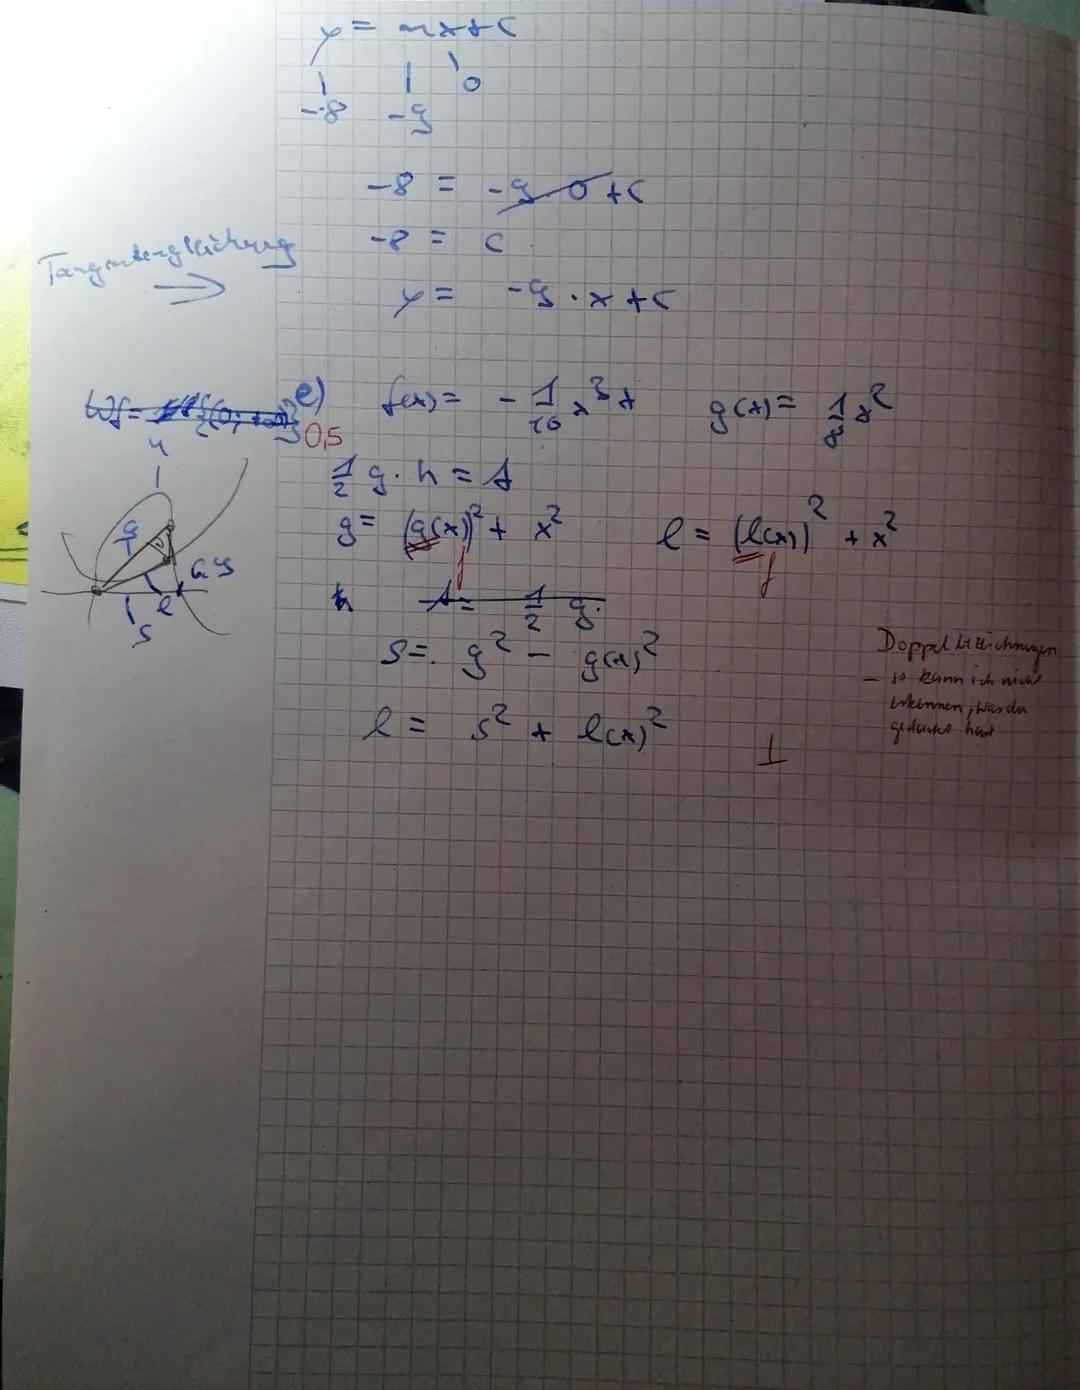 y = mx + c
-8 -9 0
-8 = -9 · 0 + c
-8 = c
Tangentengleichung
⇒ y = -9 · x + c
e) f(x) = - 1/10 x³ + g(x) = 1/8 x²
0,5
1/2 g · h = A
g = (g(x))² + x² l = (l(x))² + x²
f f
h A = 1/2 g.
s = g² - g(x)²
l = s² + l(x)²
Doppelbezeichnungen
- so kann ich nicht
erkennen, was du
gedacht hast
1
h
g
s
l